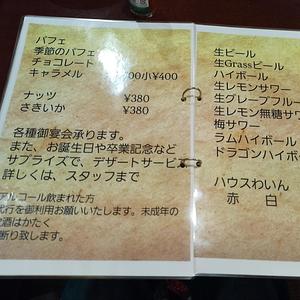 パフェ
季節のパフェ
チョコレート
キャラメル 00小¥400
ナッツ ¥380
さきいか ¥380
各種御宴会承ります。
また、お誕生日や卒業記念など
サプライズで、デザートサービ
詳しくは、スタッフまで
アルコール飲まれた方
代行を御利用お願いいたします。未成年の
酒はかたく
断り致します。
生ビール
生Grassビール
ハイボール
生レモンサワー
生グレープフルー
生レモン無糖サワ
梅サワー
ラムハイボール
ドラゴンハイボー
ハウスわいん
赤 白